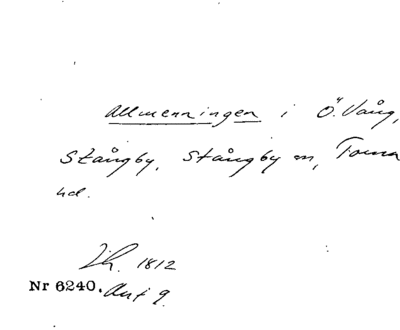 Allmenningen i Ö. Vång,
Stångby, Stångby sn, Torna
hd.
1812
Nr 6240. Akt 9.